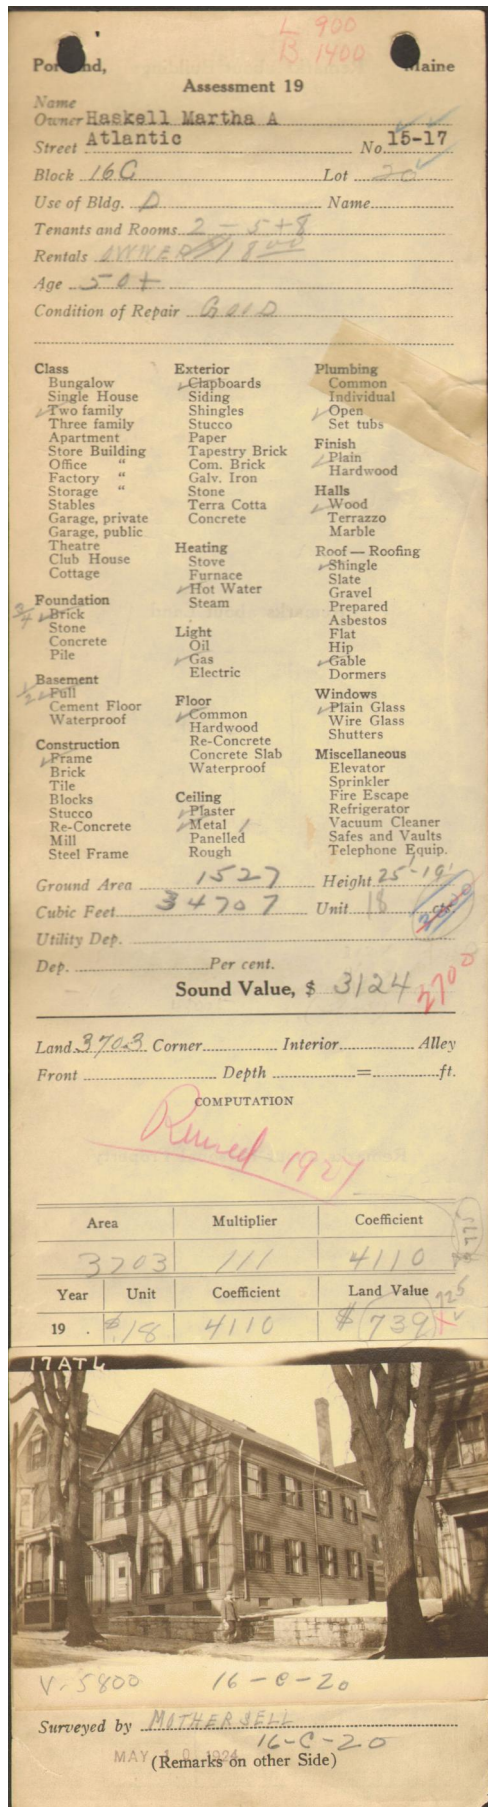 L 900
B 1400
Portland, Maine
Assessment 19
Name
Owner Haskell Martha A
Street Atlantic No. 15-17
Block 16C Lot 20
Use of Bldg. D Name
Tenants and Rooms 2 - 5+8
Rentals OWNER 18.00
Age 50+
Condition of Repair GOOD
Class
Bungalow
Single House
✓Two family
Three family
Apartment
Store Building
Office "
Factory "
Storage "
Stables
Garage, private
Garage, public
Theatre
Club House
Cottage
Foundation
3/4 ✓Brick
Stone
Concrete
Pile
Basement
1/2 ✓Full
Cement Floor
Waterproof
Construction
✓Frame
Brick
Tile
Blocks
Stucco
Re-Concrete
Mill
Steel Frame
Exterior
✓Clapboards
Siding
Shingles
Stucco
Paper
Tapestry Brick
Com. Brick
Galv. Iron
Stone
Terra Cotta
Concrete
Heating
Stove
Furnace
✓Hot Water
Steam
Light
Oil
✓Gas
Electric
Floor
✓Common
Hardwood
Re-Concrete
Concrete Slab
Waterproof
Ceiling
✓Plaster
✓Metal 1
Panelled
Rough
Plumbing
Common
Individual
✓Open
Set tubs
Finish
✓Plain
Hardwood
Halls
✓Wood
Terrazzo
Marble
Roof — Roofing
✓Shingle
Slate
Gravel
Prepared
Asbestos
Flat
Hip
✓Gable
Dormers
Windows
✓Plain Glass
Wire Glass
Shutters
Miscellaneous
Elevator
Sprinkler
Fire Escape
Refrigerator
Vacuum Cleaner
Safes and Vaults
Telephone Equip.
Ground Area 1527 Height 25'-19'
Cubic Feet 34707 Unit 18 cts.
Utility Dep.
Dep. Per cent.
Sound Value, $ 3124 2700
Land 3703 Corner Interior Alley
Front Depth = ft.
COMPUTATION
Revised 1927
Area Multiplier Coefficient
3703 111 4110
775
Year Unit Coefficient Land Value
725
19 . $.18 4110 $739
17 ATL
V-5800 16-C-20
Surveyed by MOTHERSELL
16-C-20
MAY 10 1924
(Remarks on other Side)